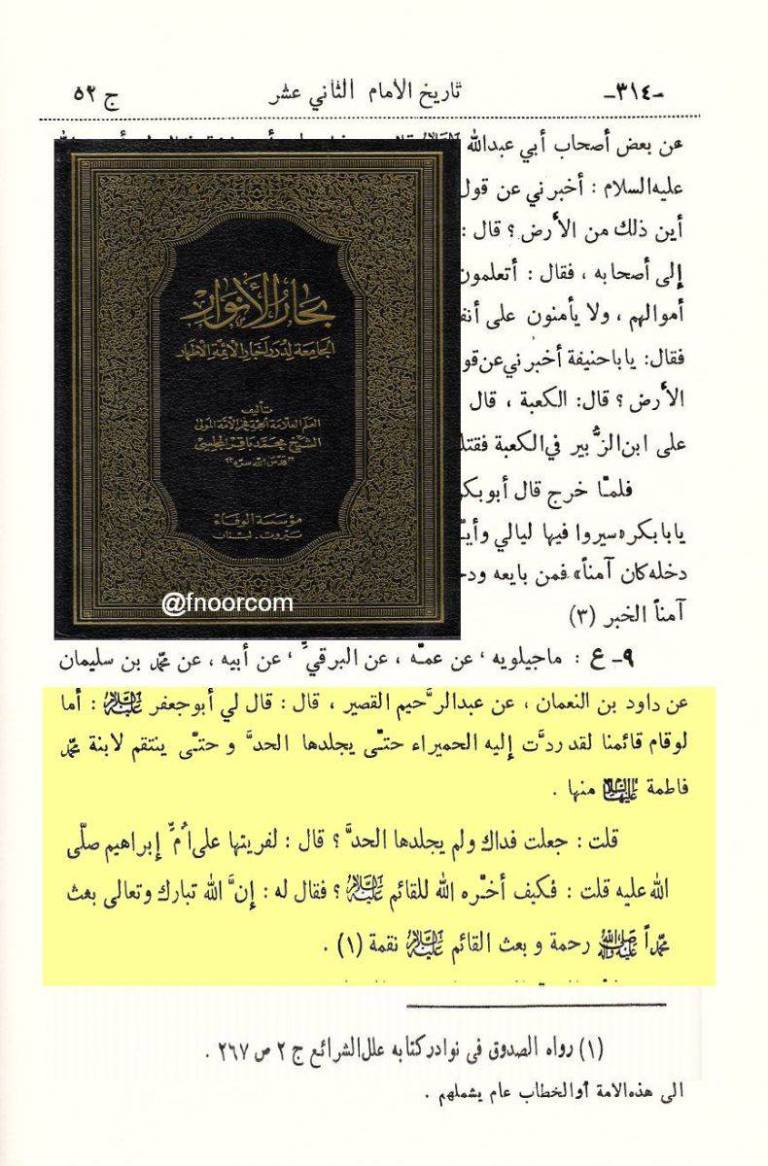 -٣١٤-
تاريخ الامام الثاني عشر
ج ٥٢
عن بعض أصحاب أبي عبدالله
عليه السلام : أخبرني عن قول
أين ذلك من الأرض ؟ قال :
إلى أصحابه ، فقال : أتعلمون
أموالهم ، ولا يأمنون على أنف
فقال: يا باحنيفة أخبرني عن قو
الأرض ؟ قال: الكعبة ، قال
على ابن الزُّبير في الكعبة فقتله
فلمّا خرج قال أبو بكر
يا بابكر «سيروا فيها ليالي وأيّ
دخله كان آمناً» فمن بايعه ودخ
آمناً الخبر (٣)
بحار الأنوار
الجامعة لدرر أخبار الأئمة الأطهار
تأليف
العلم العلامة الحجة فخر الأمة المولى
الشيخ محمد باقر المجلسي
"قدس الله سره"
مؤسسة الوفاء
بيروت - لبنان
@fnoorcom
٩- ع : ماجيلويه ، عن عمّه ، عن البرقيِّ ، عن أبيه ، عن محمّد بن سليمان
عن داود بن النعمان ، عن عبدالرَّحيم القصير ، قال : قال لي أبو جعفر عليه السلام : أما
لو قام قائمنا لقد ردَّت إليه الحميراء حتّى يجلدها الحدَّ و حتّى ينتقم لابنة محمّد
فاطمة عليها السلام منها .
قلت : جعلت فداك ولم يجلدها الحدَّ ؟ قال : لفريتها على أُمِّ إبراهيم صلّى
الله عليه قلت : فكيف أخّره الله للقائم عليه السلام ؟ فقال له : إنَّ الله تبارك وتعالى بعث
محمّداً صلى الله عليه وآله رحمة و بعث القائم عليه السلام نقمة (١) .
(١) رواه الصدوق في نوادر كتابه علل الشرائع ج ٢ ص ٢٦٧ .
الى هذه الامة أو الخطاب عام يشملهم .